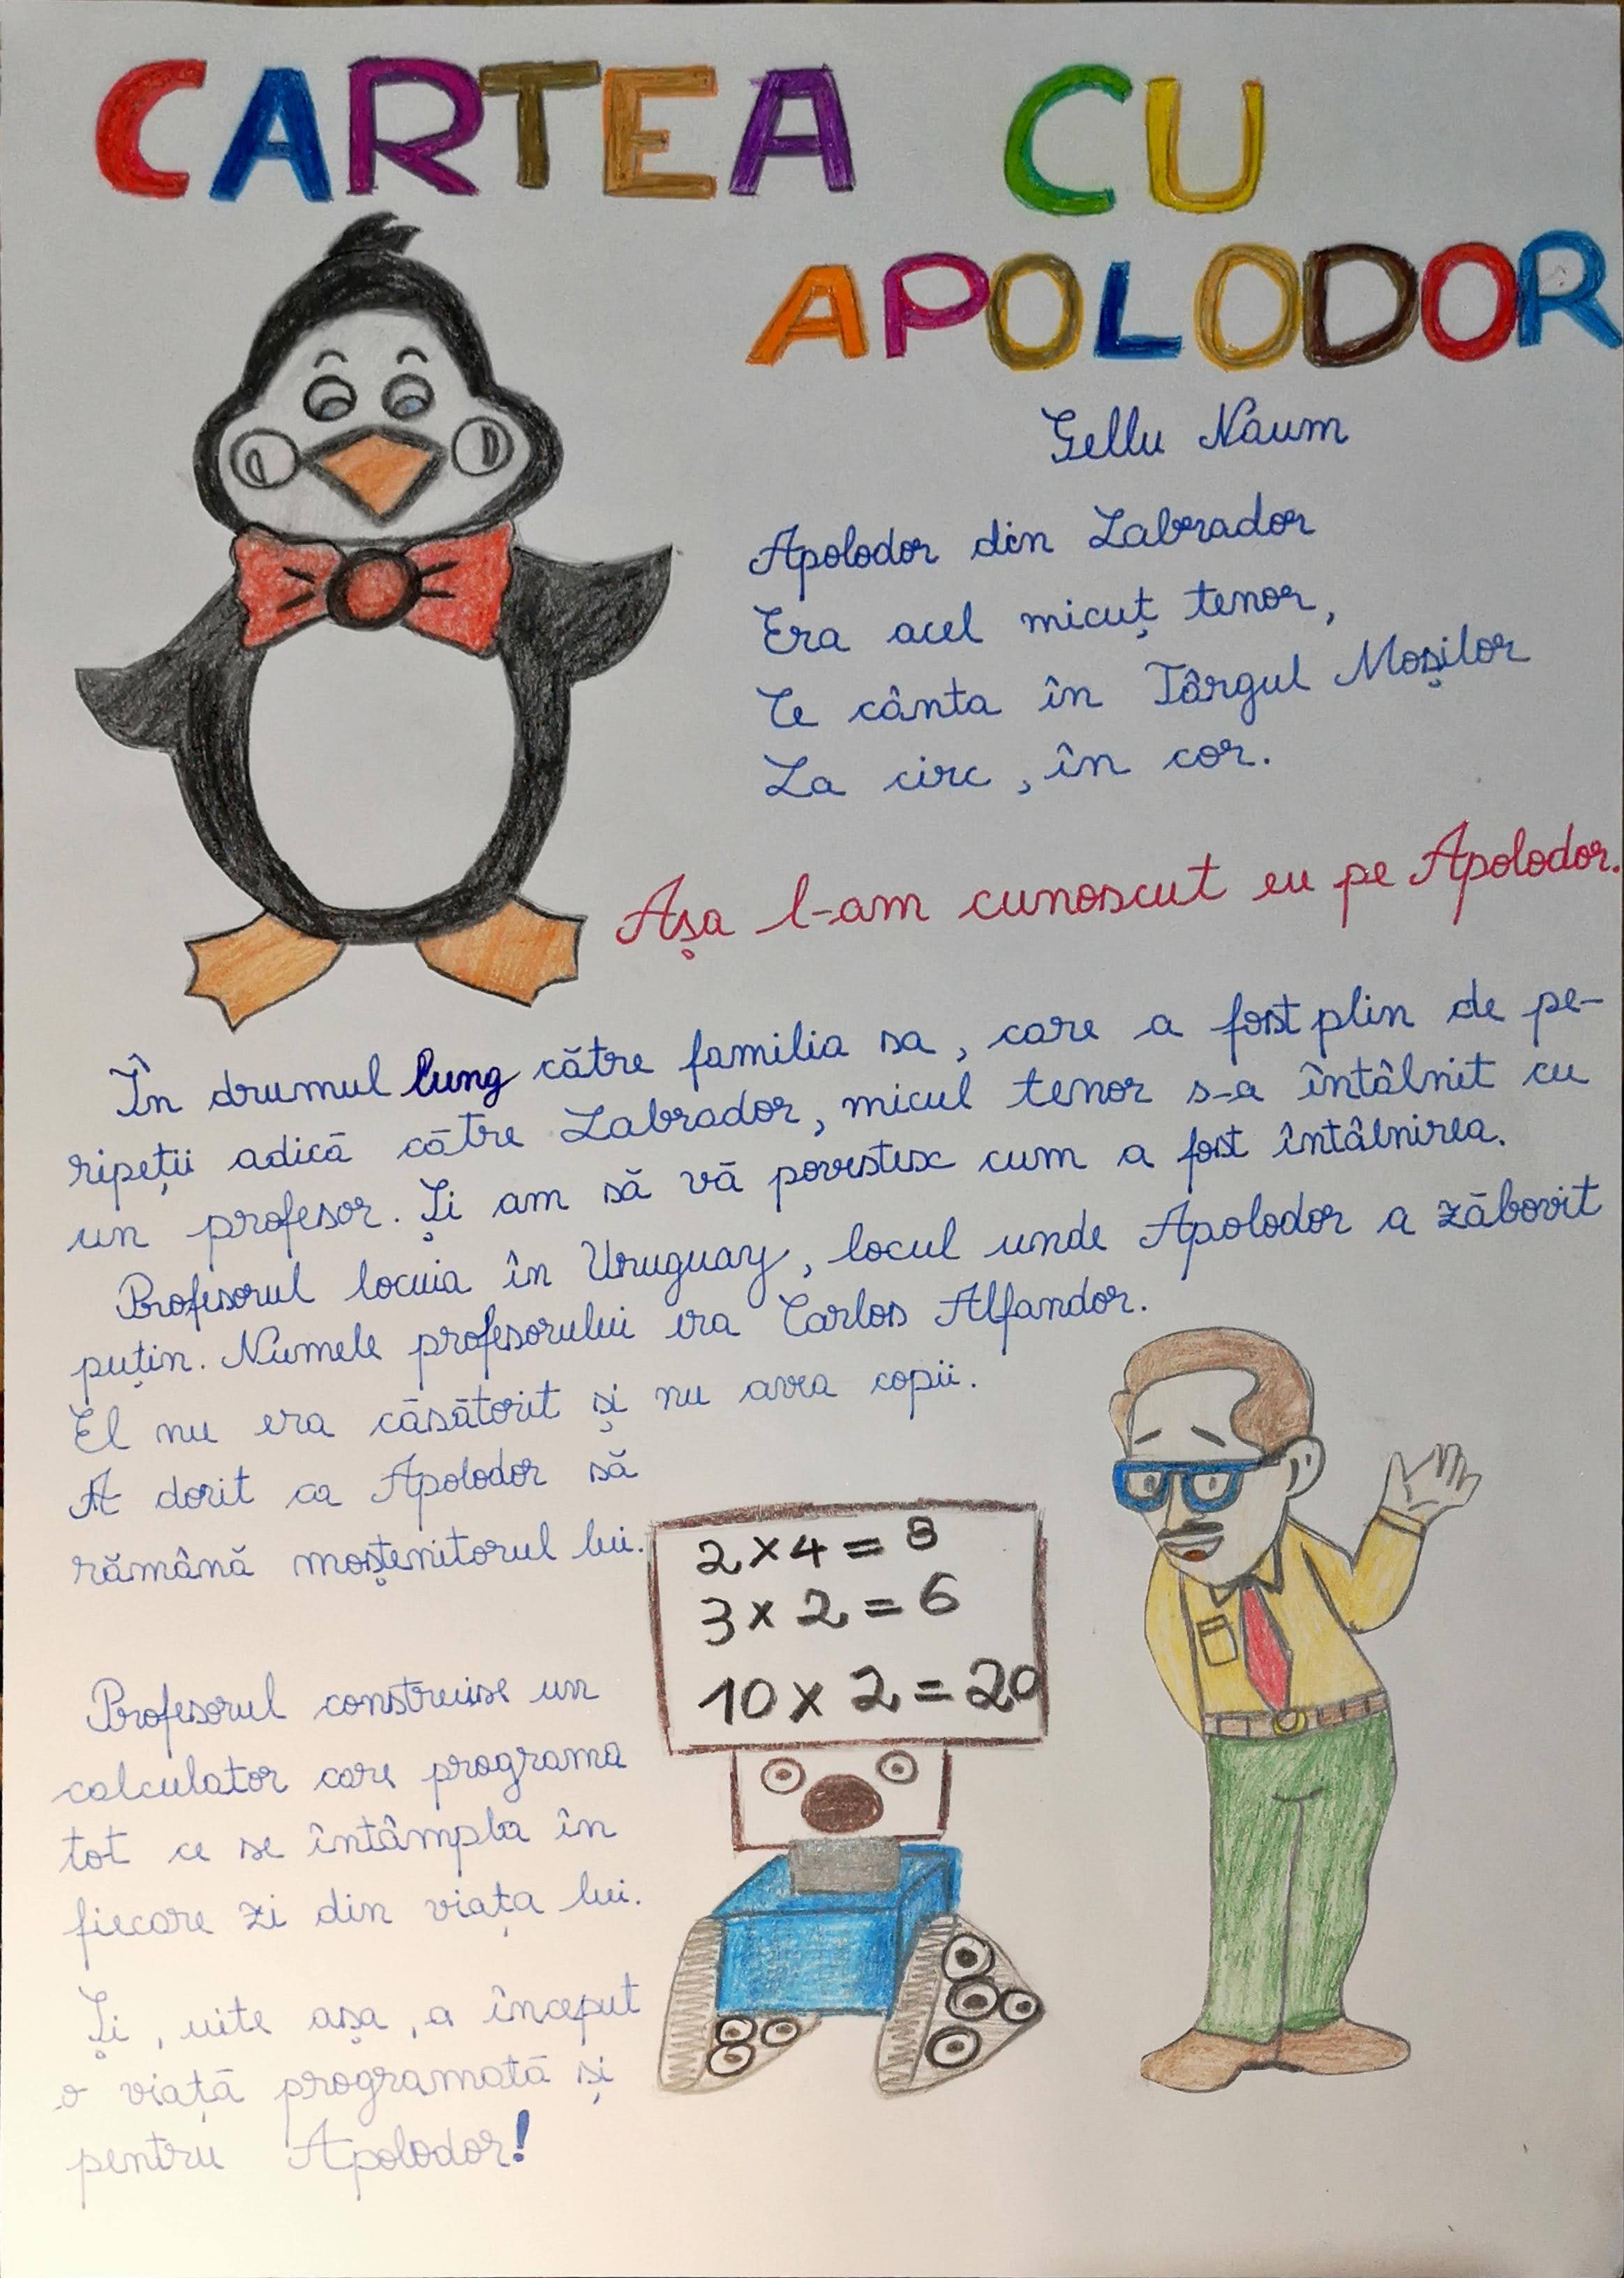 CARTEA CU
APOLODOR
Gellu Naum
Apolodor din Labrador
Era acel micuț tenor,
Ce cânta în Târgul Moșilor
La circ, în cor.
Așa l-am cunoscut eu pe Apolodor.
În drumul lung către familia sa, care a fost plin de pe-
ripeții adică către Labrador, micul tenor s-a întâlnit cu
un profesor. Și am să vă povestesc cum a fost întâlnirea.
Profesorul locuia în Uruguay, locul unde Apolodor a zăbovit
puțin. Numele profesorului era Carlos Alfandor.
El nu era căsătorit și nu avea copii.
A dorit ca Apolodor să
rămână moștenitorul lui.
2x4=8
3x2=6
10x2=20
Profesorul construise un
calculator care programa
tot ce se întâmpla în
fiecare zi din viața lui.
Și, uite așa, a început
o viață programată și
pentru Apolodor!